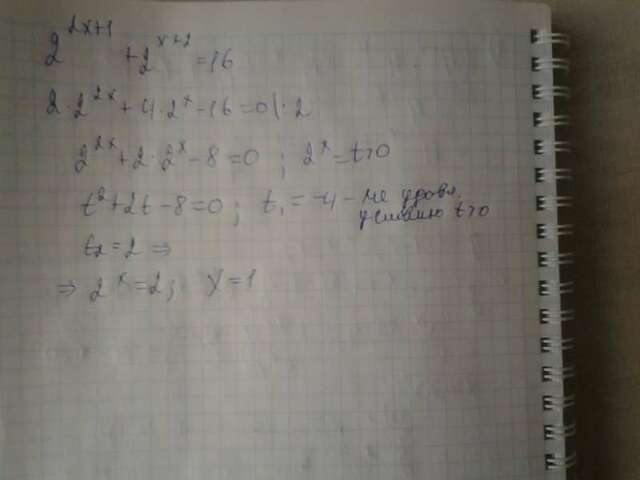 2^{2x+1} + 2^{x+2} = 16
2 · 2^{2x} + 4 · 2^x - 16 = 0 |: 2
2^{2x} + 2 · 2^x - 8 = 0 ; 2^x = t > 0
t^2 + 2t - 8 = 0 ; t_1 = -4 - не удовл.
условию t > 0
t_2 = 2 ⇒
⇒ 2^x = 2 ; x = 1